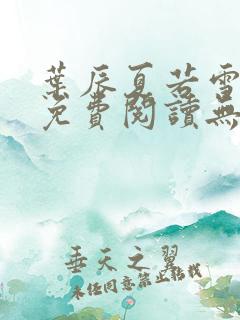 葉辰夏若雪
免費閱讀無
垂天之翼
未經同意禁止轉載